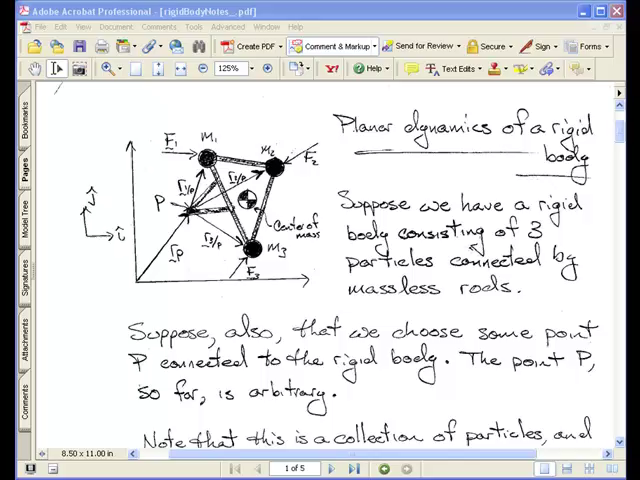 Adobe Acrobat Professional - [rigidBodyNotes_.pdf]
File Edit View Document Comments Tools Advanced Window Help
Create PDF Comment & Markup Send for Review Secure Sign Forms
125% Y! Help Text Edits
Bookmarks
Pages
Model Tree
Signatures
Attachments
Comments
Planar dynamics of a rigid
body
F1 m1 m2 F2
r1/p r2/p
P
ĵ
î
r3/p
rp
Center of
mass
m3
F3
Suppose we have a rigid
body consisting of 3
particles connected by
massless rods.
Suppose, also, that we choose some point
P connected to the rigid body. The point P,
so far, is arbitrary.
Note that this is a collection of particles, and
8.50 x 11.00 in
1 of 5